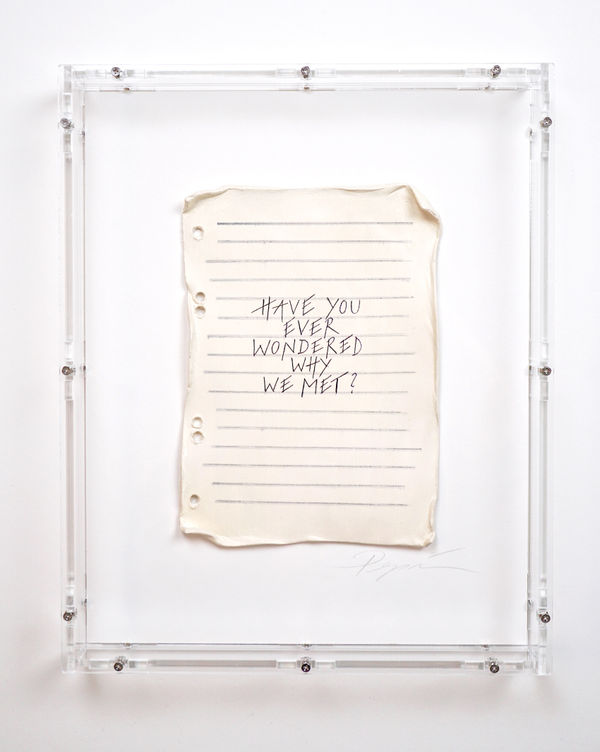 HAVE YOU
EVER
WONDERED
WHY
WE MET?